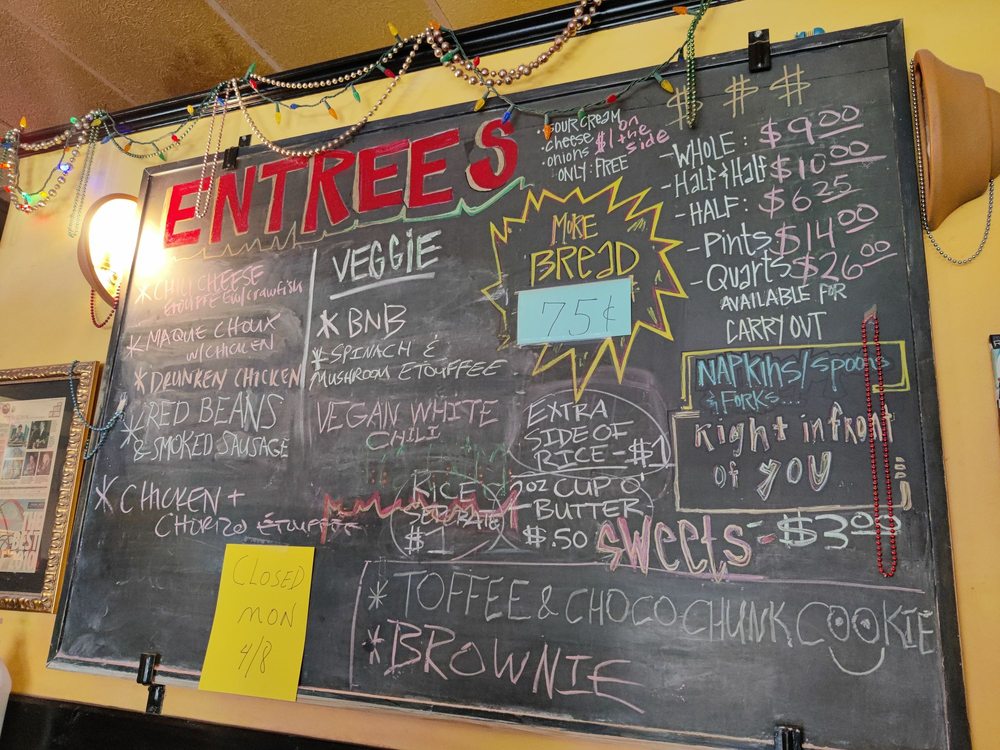 ENTREES
*CHILI CHEESE
ETOUFFEE w/crawfish
*MAQUE CHOUX
w/CHICKEN
*DRUNKEN CHICKEN
*RED BEANS
& SMOKED SAUSAGE
*CHICKEN +
CHORIZO ÉTOUFFÉE
VEGGIE
*BNB
*SPINACH &
MUSHROOM ETOUFFEE
VEGAN WHITE
CHILI
RICE
SEPERATE
$1
SOUR CREAM
cheese
onions
$1 on
the
side
ONLY: FREE
MORE
BREAD
75¢
EXTRA
SIDE OF
RICE-$1
2oz CUP O'
BUTTER
$.50
$ $ $
-WHOLE: $9.00
-Half&Half $10.00
-HALF: $6.25
-Pints $14.00
-Quarts $26.00
AVAILABLE FOR
CARRY OUT
NAPKINS/Spoons
& FORKS...
Right in front
of you
SWEETS = $3.00
*TOFFEE & CHOCO CHUNK COOKIE
*BROWNIE
CLOSED
MON
4/8